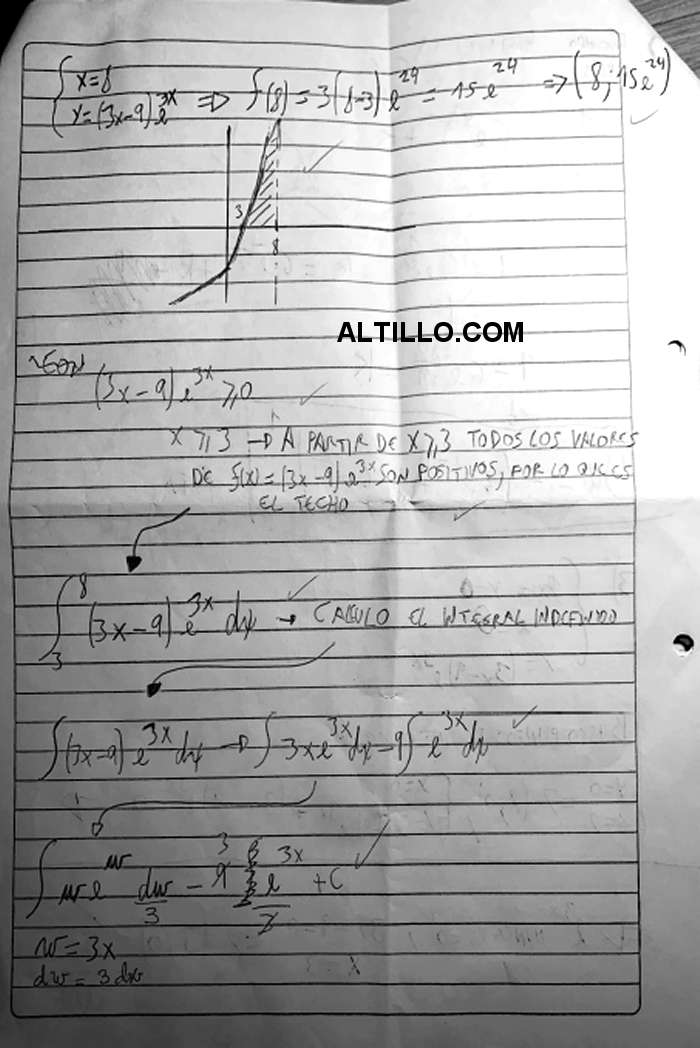 { x=8
{ y=(3x-9)e^{3x} => f(8)=3(8-3)e^{24}=15e^{24} => (8;15e^{24})
3
8
ALTILLO.COM
(3x-9)e^{3x}≥0
x≥3 → A PARTIR DE x≥3 TODOS LOS VALORES
DE f(x)=(3x-9)e^{3x} SON POSITIVOS, POR LO QUE ES
EL TECHO
∫_3^8 (3x-9)e^{3x} dx → CALCULO EL INTEGRAL INDEFINIDO
∫(3x-9)e^{3x}dx → ∫3xe^{3x}dx-9∫e^{3x}dx
∫we^w dw/3 - 9 3 e^{3x}/3 +C
w=3x
dw=3dx